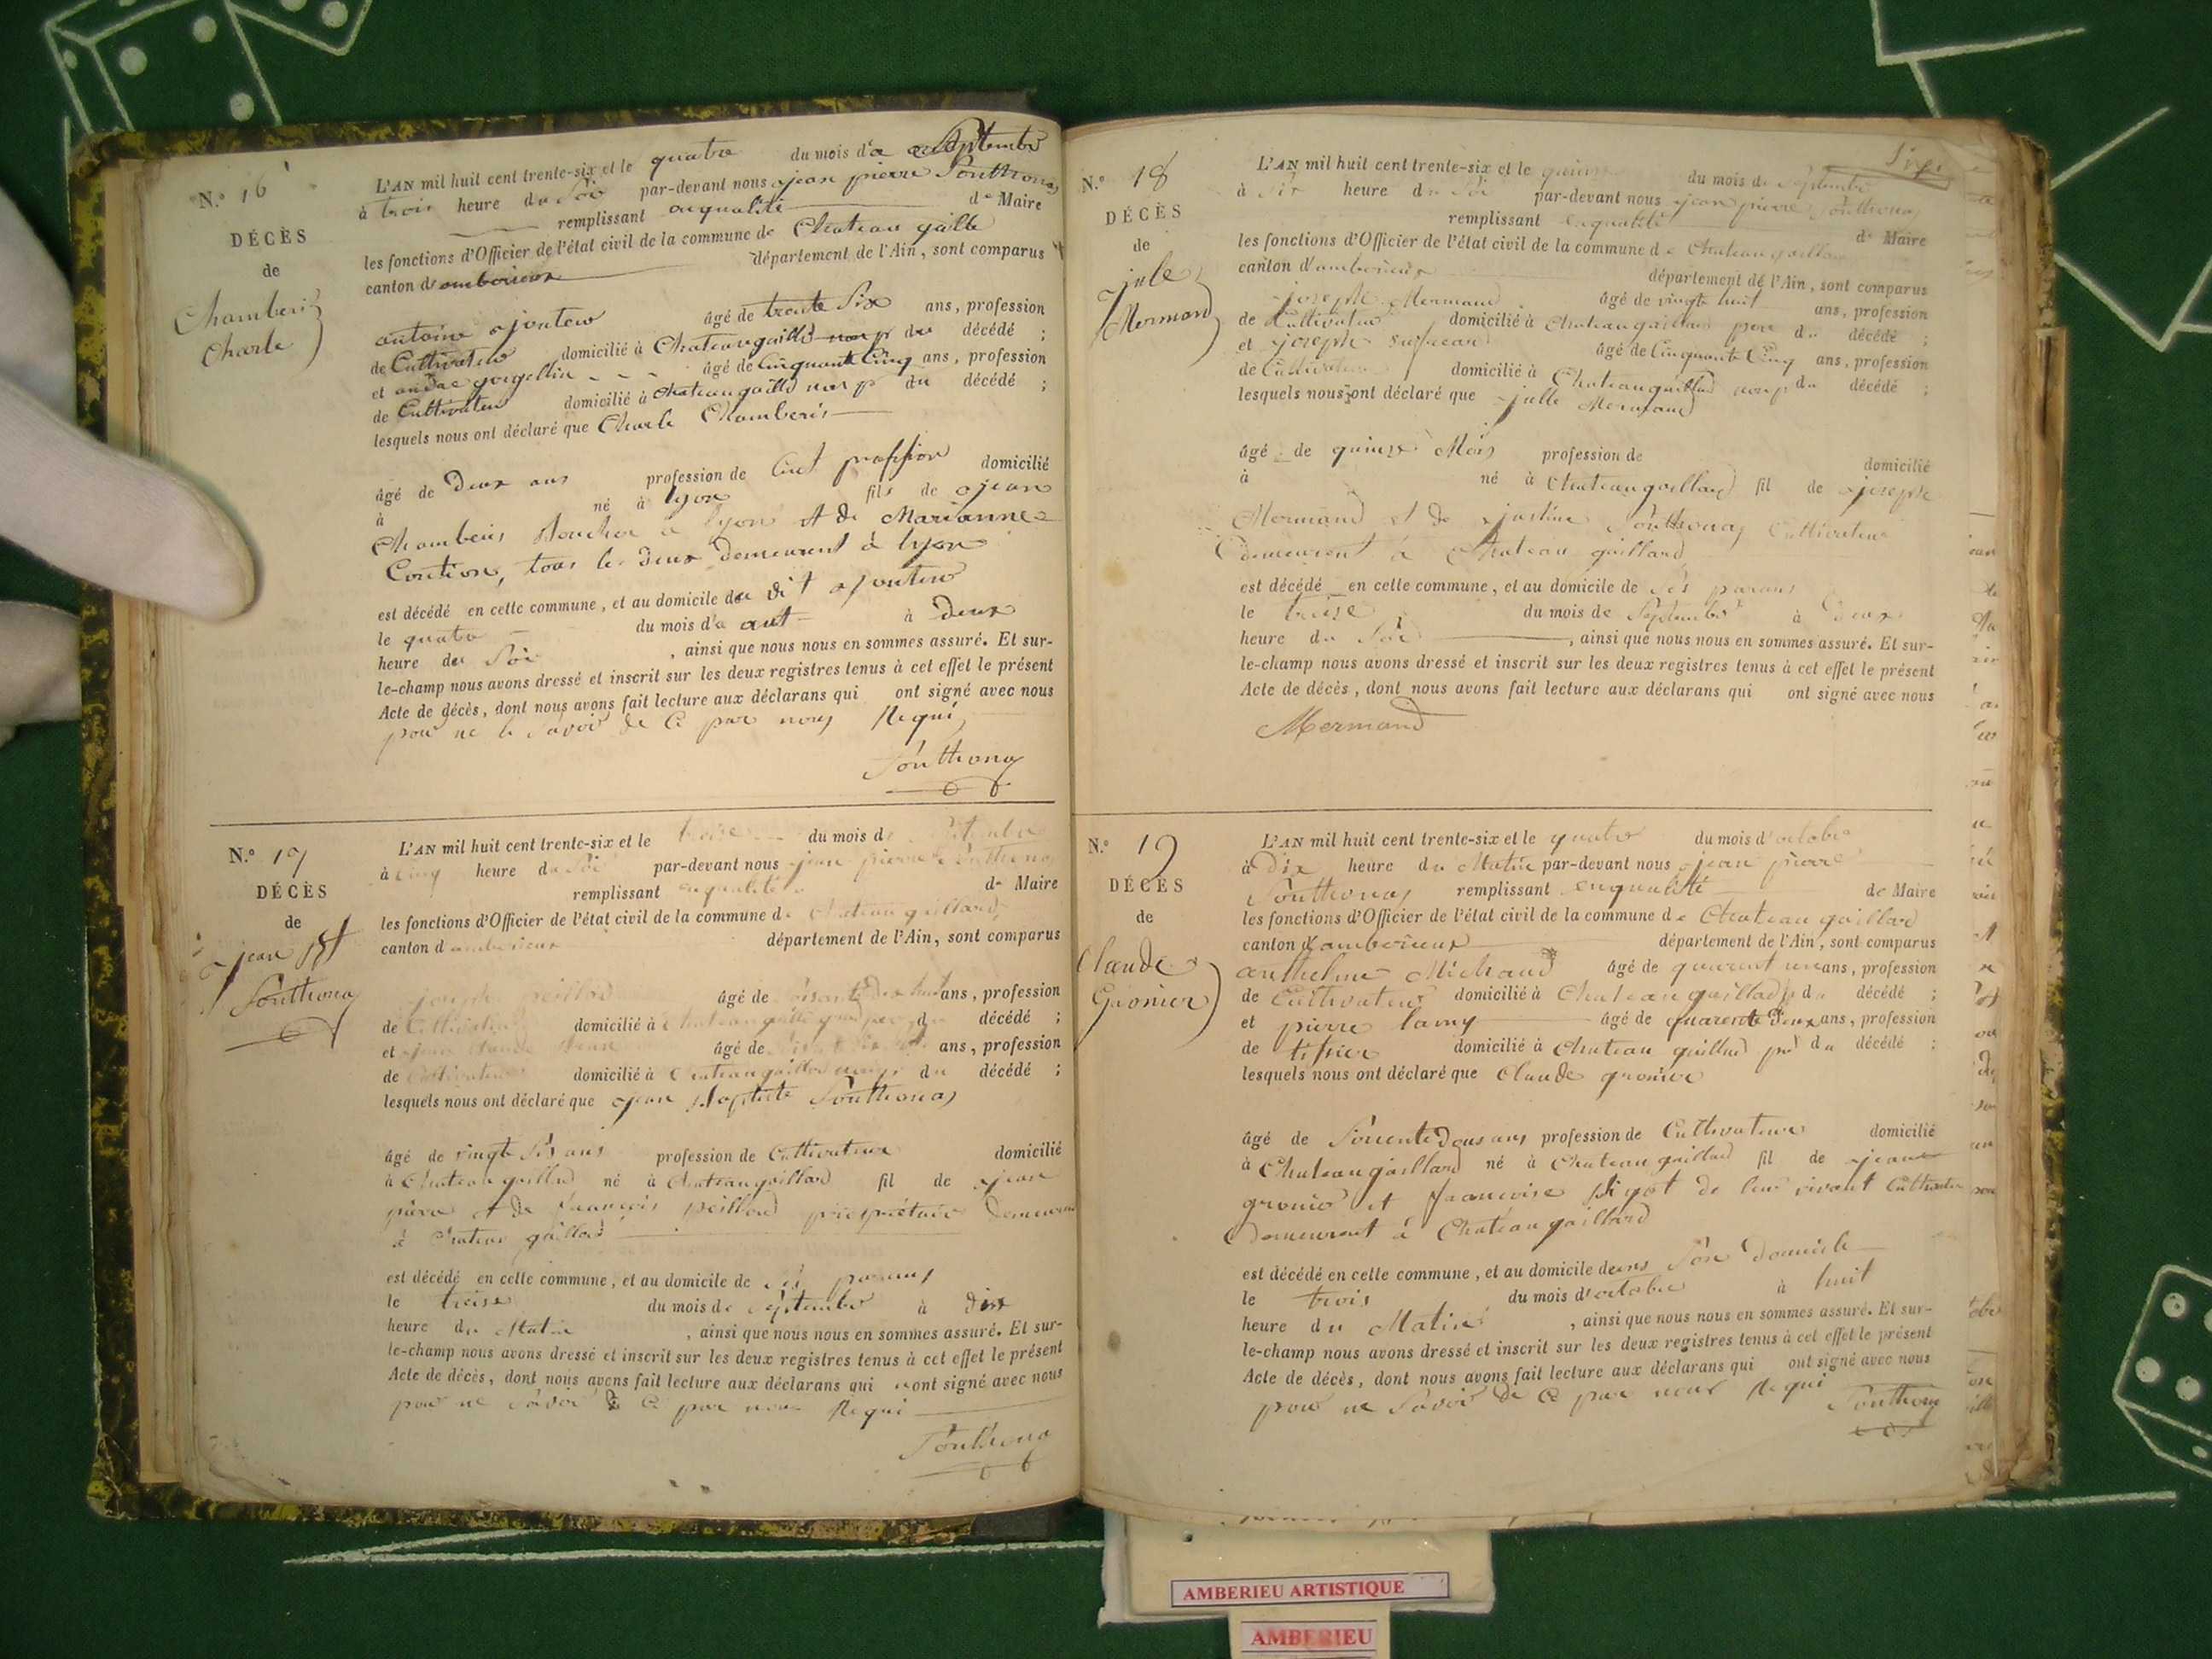 N.° 16
DÉCÈS
de
Chamberis
Charle
L'AN mil huit cent trente-six et le quatre du mois d'a Septembre
à trois heure du Soir par-devant nous jean pierre Southonax
remplissant enqualité de Maire
les fonctions d'Officier de l'état civil de la commune de Chateau gaille
canton d'amberieux département de l'Ain, sont comparus
antoine ajouteur âgé de trente Six ans, profession
de Cultivateur domicilié à Chateaugaille du décédé ;
et âgé de Cinquante Cinq ans, profession
de Cultivateur domicilié à Chateaugaille non p du décédé ;
lesquels nous ont déclaré que Charle Chamberis
âgé de Deux ans profession de domicilié
à né à lyon fils de jean
Chamberis à lyon et de Marianne
tous les deux demeurent à lyon
est décédé en cette commune, et au domicile du dit ajouteur
le quatre du mois d'a aut à Deux
heure du Soir , ainsi que nous nous en sommes assuré. Et sur-
le-champ nous avons dressé et inscrit sur les deux registres tenus à cet effet le présent
Acte de décès, dont nous avons fait lecture aux déclarans qui ont signé avec nous
pour ne le Savoir de Ce par nous Requi
Southonax
N.° 17
DÉCÈS
de
jean Bt
Southonax
L'AN mil huit cent trente-six et le treise du mois de Septembre
à Cinq heure du Soir par-devant nous jean pierre Southonax
remplissant enqualité de Maire
les fonctions d'Officier de l'état civil de la commune de Chateau gaillard
canton d'amberieux département de l'Ain, sont comparus
joseph peillod âgé de ans, profession
de Cultivateur domicilié à du décédé ;
et jean Claude âgé de ans, profession
de Cultivateur domicilié à Chateaugaillard du décédé ;
lesquels nous ont déclaré que jean Baptiste Southonax
âgé de vingt Six ans profession de Cultivateur domicilié
à Chateaugaillard né à Chateaugaillard fil de jean
et de françois peillod propriétaire demeurent
à Chateau gaillard
est décédé en cette commune, et au domicile de Ses parens
le treise du mois de Septembre à dix
heure du Matin , ainsi que nous nous en sommes assuré. Et sur-
le-champ nous avons dressé et inscrit sur les deux registres tenus à cet effet le présent
Acte de décès, dont nous avons fait lecture aux déclarans qui ont signé avec nous
pour ne Savoir de Ce par nous Requi
Southonax
N.° 18
DÉCÈS
de
jule
Mermand
L'AN mil huit cent trente-six et le du mois de Septembre
à Six heure du Soir par-devant nous jean pierre Southonax
remplissant enqualité de Maire
les fonctions d'Officier de l'état civil de la commune de Chateau gaillard
canton d'amberieux département de l'Ain, sont comparus
joseph Mermand âgé de vingt huit ans, profession
de Cultivateur domicilié à Chateaugaillard pere du décédé ;
et joseph âgé de Cinquante Cinq ans, profession
de Cultivateur domicilié à Chateaugaillard non p du décédé ;
lesquels nous ont déclaré que julle Mermand
âgé de quinze Mois profession de domicilié
à né à Chateaugaillard fil de joseph
Mermand et de justine Southonax Cultivateur
demeurent à Chateau gaillard
est décédé en cette commune, et au domicile de Ses parans
le treise du mois de Septembre à Deux
heure du Soir , ainsi que nous nous en sommes assuré. Et sur-
le-champ nous avons dressé et inscrit sur les deux registres tenus à cet effet le présent
Acte de décès, dont nous avons fait lecture aux déclarans qui ont signé avec nous
Mermand
N.° 19
DÉCÈS
de
Claude
Gronier
L'AN mil huit cent trente-six et le quatre du mois d'octobre
à Dix heure du Matin par-devant nous jean pierre
Southonax remplissant enqualité de Maire
les fonctions d'Officier de l'état civil de la commune de Chateau gaillard
canton d'amberieux département de l'Ain, sont comparus
anthelme Michaud âgé de quarent un ans, profession
de Cultivateur domicilié à Chateaugaillard du décédé ;
et pierre lamy âgé de quarente Deux ans, profession
de tissier domicilié à Chateau gaillard du décédé ;
lesquels nous ont déclaré que Claude gronier
âgé de ans profession de Cultivateur domicilié
à Chateaugaillard né à Chateau gaillard fil de jean
gronier et françoise de leur vivant Cultivateur
Demeurent à Chateaugaillard
est décédé en cette commune, et au domicile dans Son Domicile
le trois du mois d'octobre à huit
heure du Matin , ainsi que nous nous en sommes assuré. Et sur-
le-champ nous avons dressé et inscrit sur les deux registres tenus à cet effet le présent
Acte de décès, dont nous avons fait lecture aux déclarans qui ont signé avec nous
pour ne Savoir de Ce par nous Requi
Southonax
AMBERIEU ARTISTIQUE
AMBERIEU